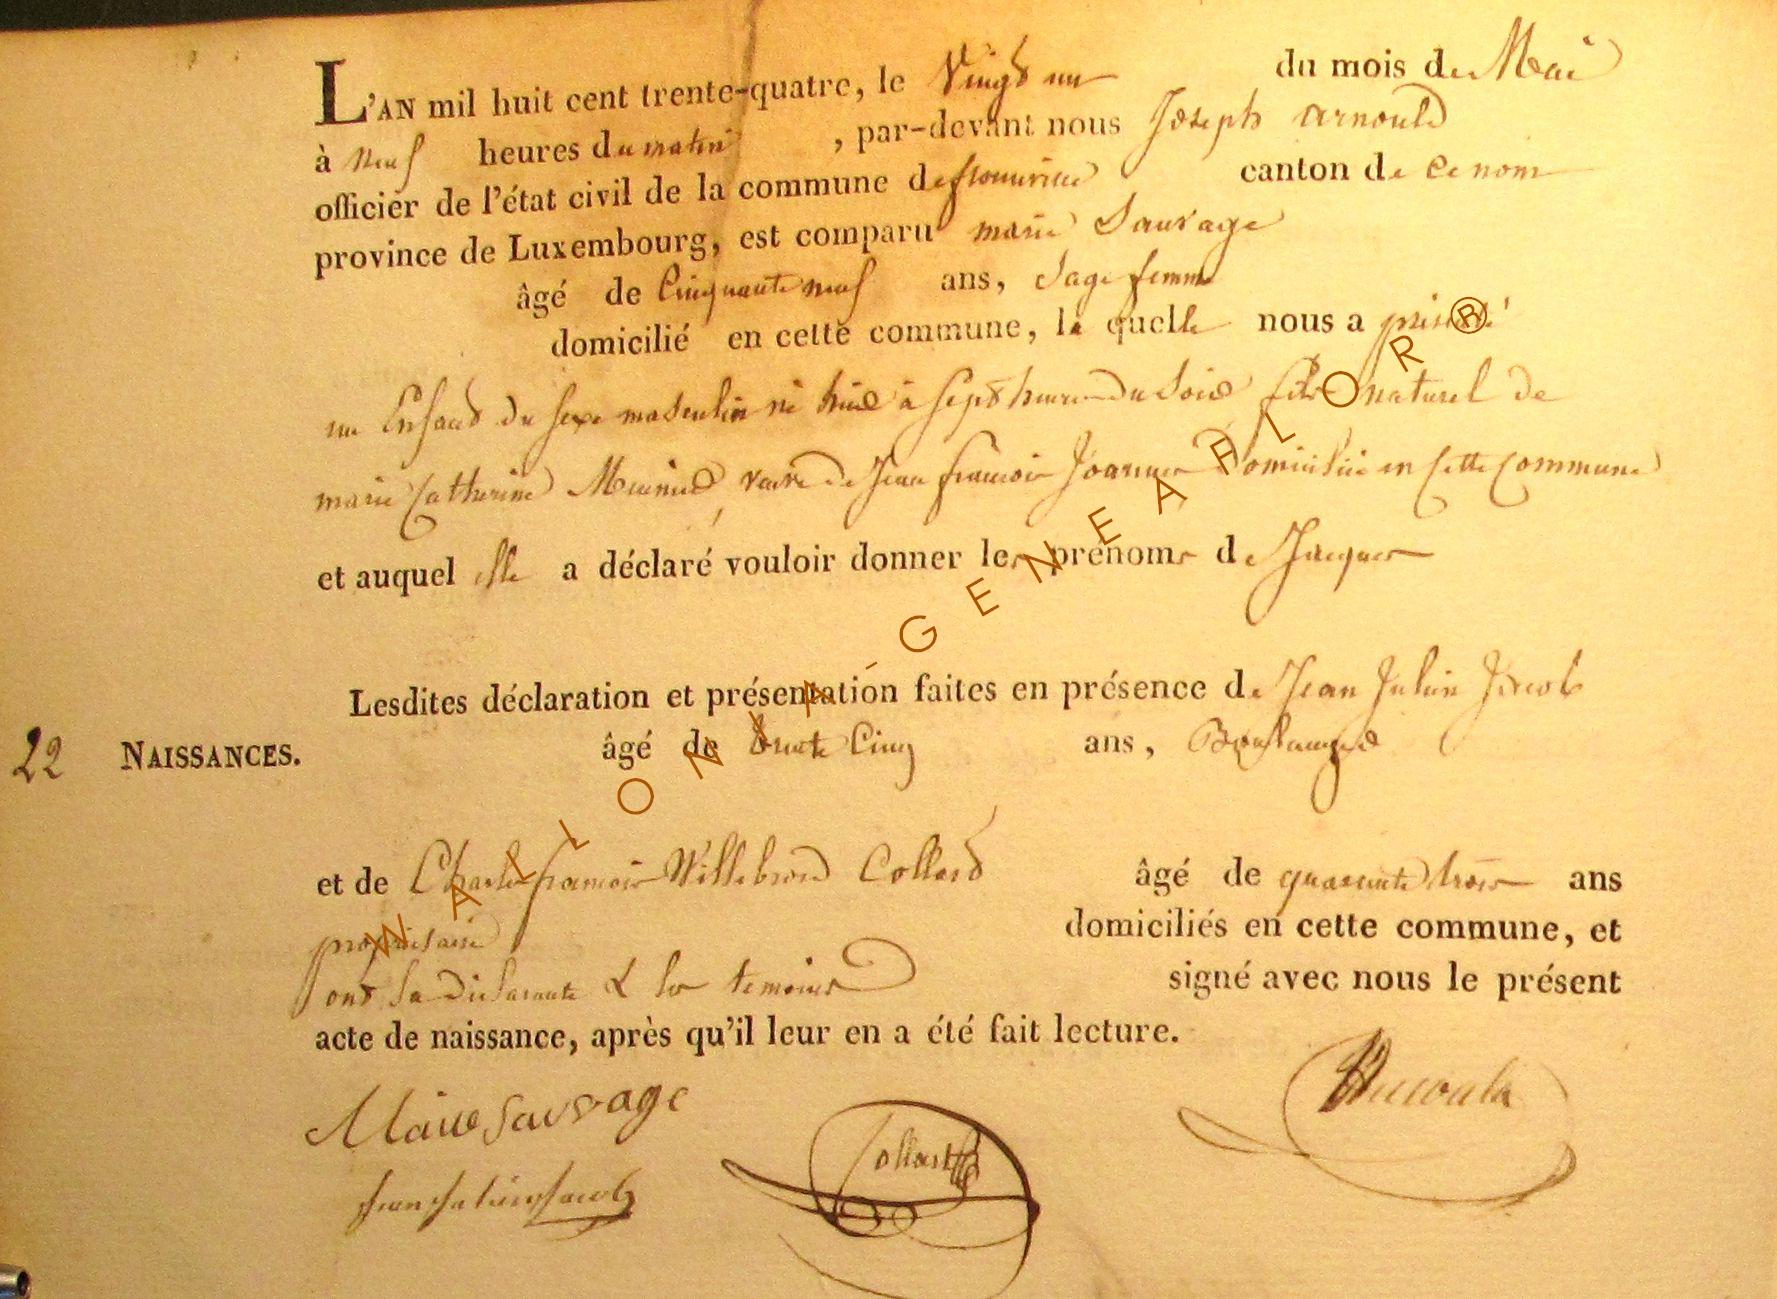 L'AN mil huit cent trente-quatre, le Vingt un du mois de Mai
à neuf heures du matin, par-devant nous Joseph Arnould
officier de l'état civil de la commune de canton de ce nom
province de Luxembourg, est comparu marie Sauvage
âgé de Cinquante neuf ans, Sage femme
domicilié en cette commune, la quelle nous a présenté
un Enfant du sexe masculin né à Sept heures du Soir fils naturel de
marie Catherine veuve de Jean françois domiciliée en Cette Commune
et auquel elle a déclaré vouloir donner les prénoms de Jacques
Lesdites déclaration et présentation faites en présence de Jean Julien Jacob
22 NAISSANCES. âgé de trente Cinq ans, Boulanger
et de Charles françois Willebrord Collard âgé de quarante trois ans
propriétaire domiciliés en cette commune, et
ont la Déclarante & les temoins signé avec nous le présent
acte de naissance, après qu'il leur en a été fait lecture.
Marie Sauvage
Collard
Jean Julien Jacob
WALLONIA-GENEAFLOR®